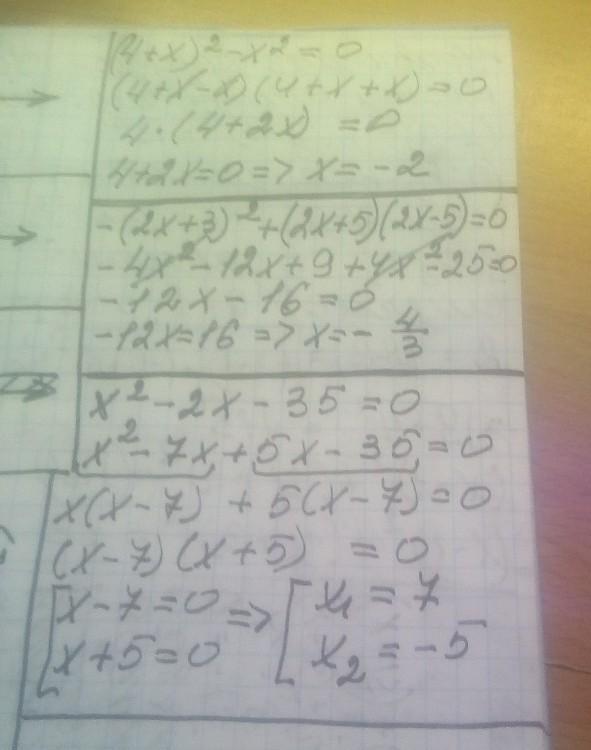 (4+x)² - x² = 0
(4+x-x)(4+x+x) = 0
4·(4+2x) = 0
4+2x=0 => x = -2
-(2x+3)²+(2x+5)(2x-5)=0
-4x² - 12x + 9 + 4x² - 25=0
-12x - 16 = 0
-12x=16 => x = - 4/3
x² - 2x - 35 = 0
x² - 7x + 5x - 35 = 0
x(x-7) + 5(x-7) = 0
(x-7)(x+5) = 0
[x-7=0 => [x₁ = 7
[x+5=0 [x₂ = -5